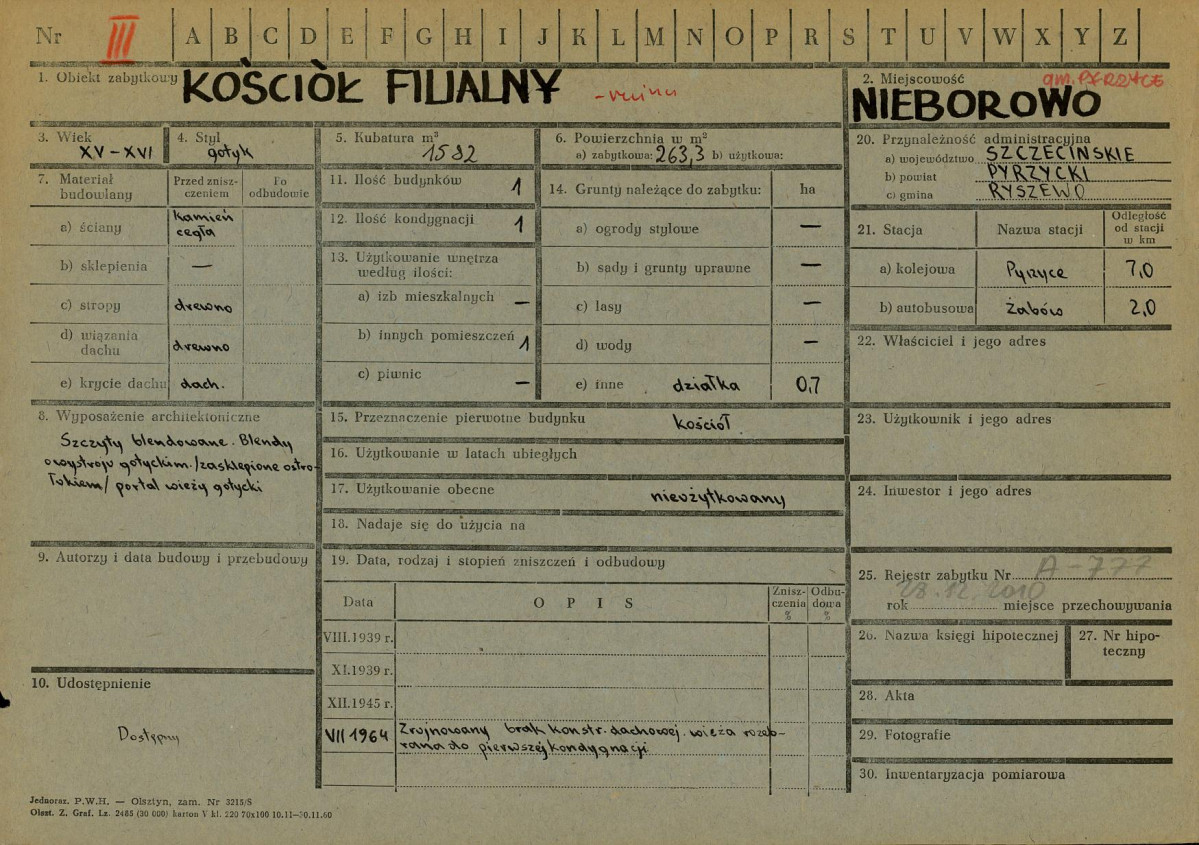 Nr III A B C D E F G H I J K L M N O P R S T U V W X Y Z
1. Obiekt zabytkowy KOŚCIÓŁ FILIALNY - ruina
2. Miejscowość gm. PYRZYCE
NIEBOROWO
3. Wiek
XV - XVI
4. Styl
gotyk
5. Kubatura m³
1582
6. Powierzchnia w m²
a) zabytkowa: 263,3 b) użytkowa:
7. Materiał budowlany
Przed znisz-
czeniem
Po
odbudowie
a) ściany
kamień
cegła
b) sklepienia —
c) stropy drewno
d) wiązania
dachu drewno
e) krycie dachu dach.
8. Wyposażenie architektoniczne
Szczyty blendowane. Blendy
o wystroju gotyckim. /zasklepione ostro-
łukiem/ portal wieży gotycki
9. Autorzy i data budowy i przebudowy
10. Udostępnienie
Dostępny
11. Ilość budynków 1
12. Ilość kondygnacji 1
13. Użytkowanie wnętrza
według ilości:
a) izb mieszkalnych —
b) innych pomieszczeń 1
c) piwnic —
14. Grunty należące do zabytku: ha
a) ogrody stylowe —
b) sady i grunty uprawne —
c) lasy —
d) wody —
e) inne działka 0,7
15. Przeznaczenie pierwotne budynku kościół
16. Użytkowanie w latach ubiegłych
17. Użytkowanie obecne nieużytkowany
18. Nadaje się do użycia na
19. Data, rodzaj i stopień zniszczeń i odbudowy
Data OPIS
Znisz-
czenia
%
Odbu-
dowa
%
VIII.1939 r.
XI.1939 r.
XII.1945 r.
VII 1964 Zrujnowany brak konstr. dachowej. wieża rozeb-
rana do pierwszej kondygnacji
20. Przynależność administracyjna
a) województwo SZCZECIŃSKIE
b) powiat PYRZYCKI
c) gmina RYSZEWO
21. Stacja Nazwa stacji
Odległość
od stacji
w km
a) kolejowa Pyrzyce 7,0
b) autobusowa Żabów 2,0
22. Właściciel i jego adres
23. Użytkownik i jego adres
24. Inwestor i jego adres
25. Rejestr zabytku Nr A-777
rok 28.12.2010 miejsce przechowywania
26. Nazwa księgi hipotecznej
27. Nr hipo-
teczny
28. Akta
29. Fotografie
30. Inwentaryzacja pomiarowa
Jednoraz. P.W.H. — Olsztyn, zam. Nr 3215/S
Olszt. Z. Graf. Lz. 2485 (30 000) karton V kl. 220 70x100 10.11—30.11.60